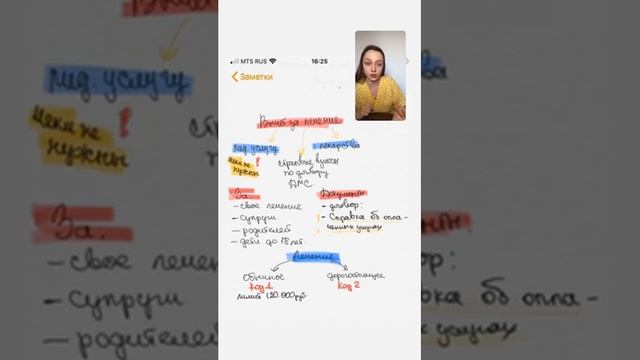 MTS RUS 16:25
Заметки
Вычет за лечение
мед. услугу
лекарства
чеки не нужны!
страховые взносы
по договору
ДМС
За
- свое лечение
- супруги
- родителей
- дети до 18 лет.
Документы
- договор:
- Справка об опла-
ченных услугах
Лечение
Обычное
Код 1
лимит 120.000 руб.
Дорогостоящее
Код 2